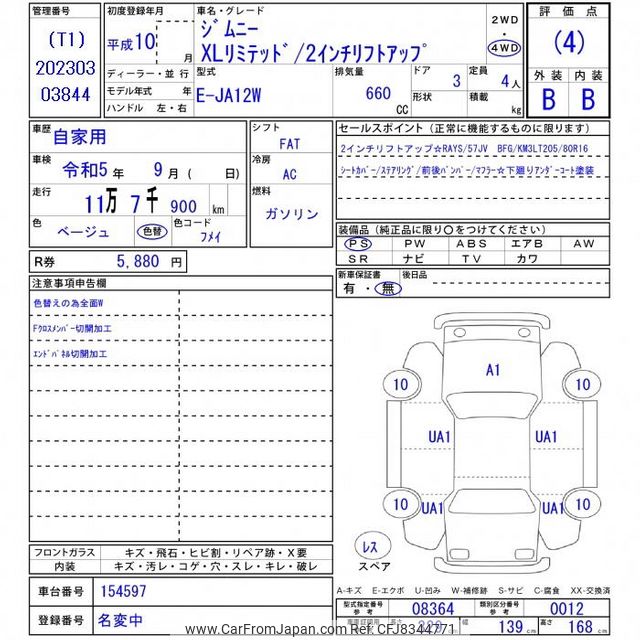 管理番号
(T1)
202303
03844
初度登録年月
平成10年 月
車名・グレード
ジムニー
XLリミテッド/2インチリフトアップ
2WD
・
4WD
評価点
(4)
外装 内装
B B
ディーラー・並行
モデル年式 年
ハンドル 左・右
型式
E-JA12W
排気量
660
CC
ドア 3
形状
定員 4人
積載 kg
車歴 自家用
車検 令和5年 9月 ( 日)
走行 11万 7千 900 km
色 ベージュ 色替 色コード フメイ
シフト
FAT
冷房
AC
燃料
ガソリン
セールスポイント (正常に機能するものに限ります)
2インチリフトアップ☆RAYS/57JV BFG/KM3LT205/80R16
シートカバー/ステアリング/前後バンパー/マフラー☆下廻りアンダーコート塗装
装備品 (純正品に限り〇をつけてください)
PS PW ABS エアB AW
SR ナビ TV カワ
新車保証書 後日品
有・無
R券 5,880 円
注意事項申告欄
色替えの為全面W
Fクロスメンバー切開加工
エンドパネル切開加工
A1
10 10
UA1 UA1
10 10
UA1 UA1
レス
スペア
フロントガラス キズ・飛石・ヒビ割・リペア跡・X要
内装 キズ・汚レ・コゲ・穴・スレ・キレ・破レ
車台番号 154597
登録番号 名変中
A-キズ E-エクボ U-凹み W-補修跡 S-サビ C-腐食 XX-交換済
型式指定番号 参考 08364 類別区分番号 参考 0012
長さ 幅 139 cm 高さ 168 cm
www.CarFromJapan.com Ref:CFJ8344771